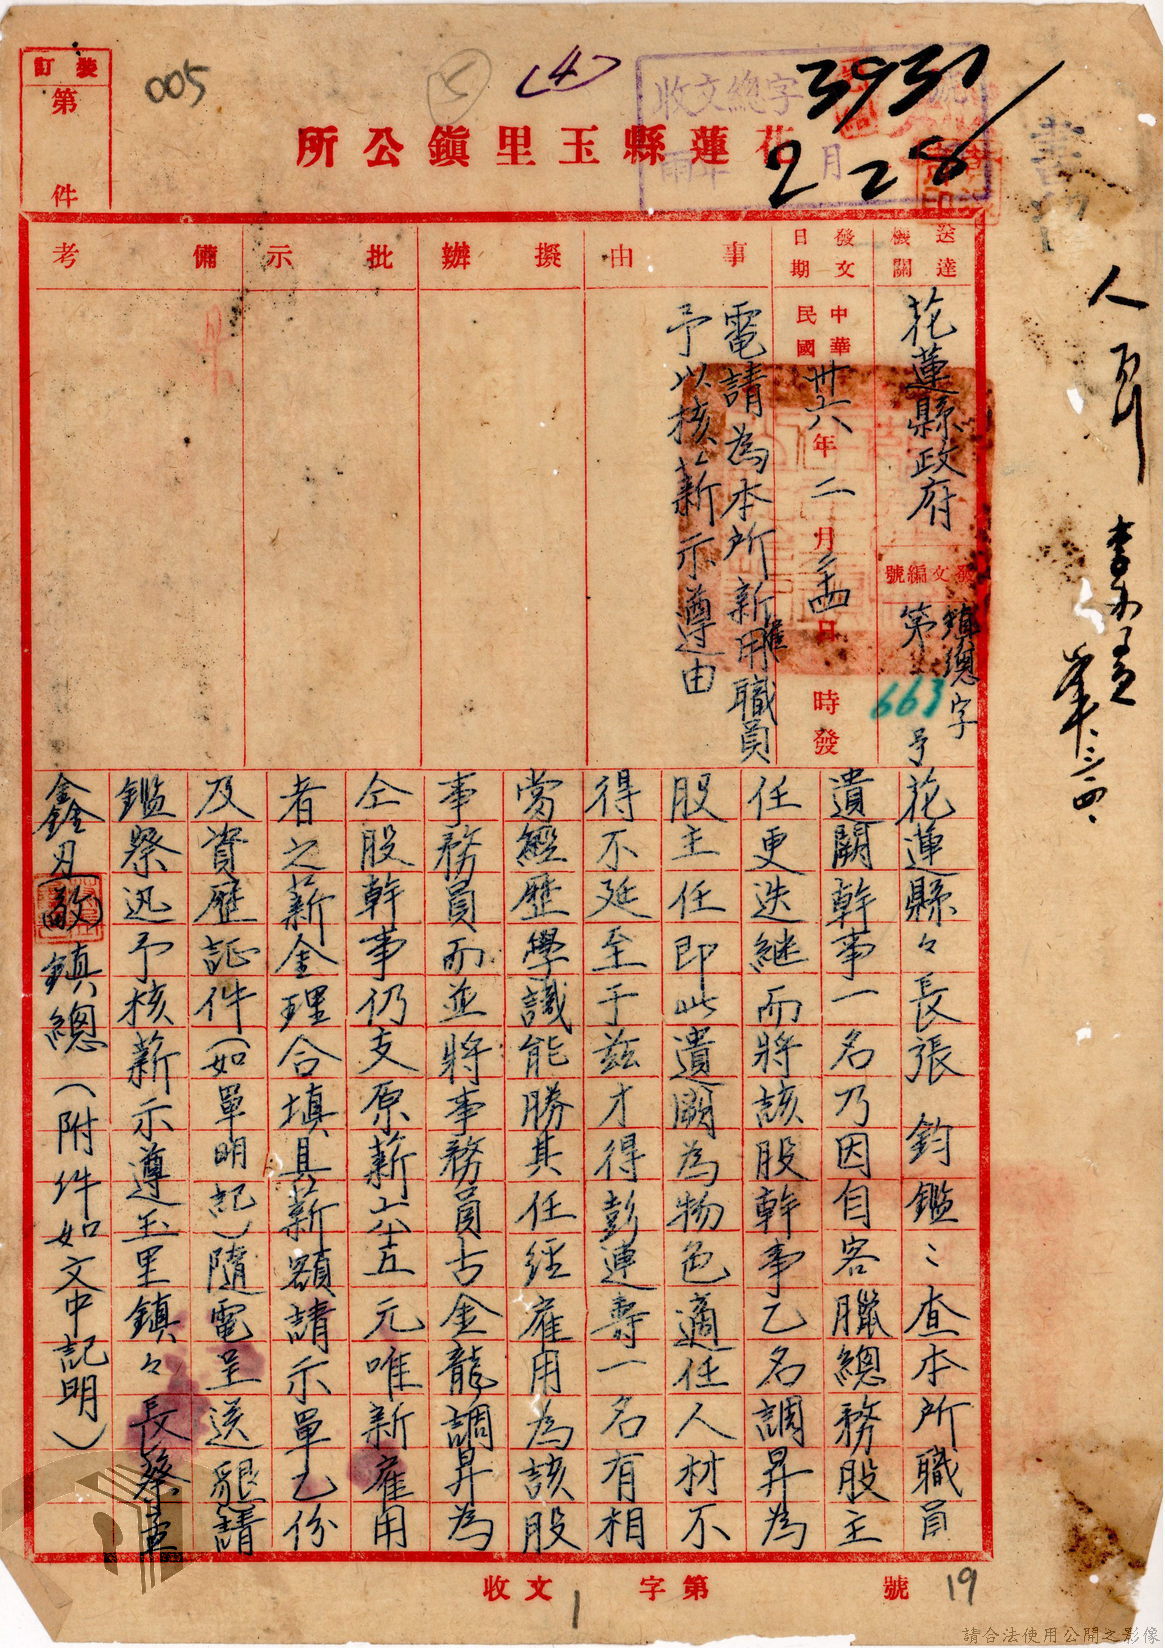 005
5
(4)
收文總字
號
3937
月
2 28
花蓮縣玉里鎮公所
裝訂
第
件
送達機關
花蓮縣政府
發文編號
鎮總字
第
663
号
發文日期
中華民國
卅六年二月
日
時發
事由
電請為本所新雇用職員
予以核薪示遵由
擬辦
批示
備考
花蓮縣々長張 鈞鑑:查本所職員
遺闕幹事一名乃因自客臘總務股主
任更迭継而將該股幹事乙名調昇為
股主任即此遺闕為物色適任人材不
得不延至于茲才得彭連壽一名有相
當經歷學識能勝其任経雇用為該股
事務員而並將事務員古金龍調昇為
仝股幹事仍支原薪六十五元唯新雇用
者之薪金理合填具薪額請示單乙份
及資歷証件(如單明記)隨電呈送懇請
鑑察迅予核薪示遵玉里鎮々長蔡
鎮總(附件如文中記明)
收文
字第
號
1
19
請合法使用公開之影像